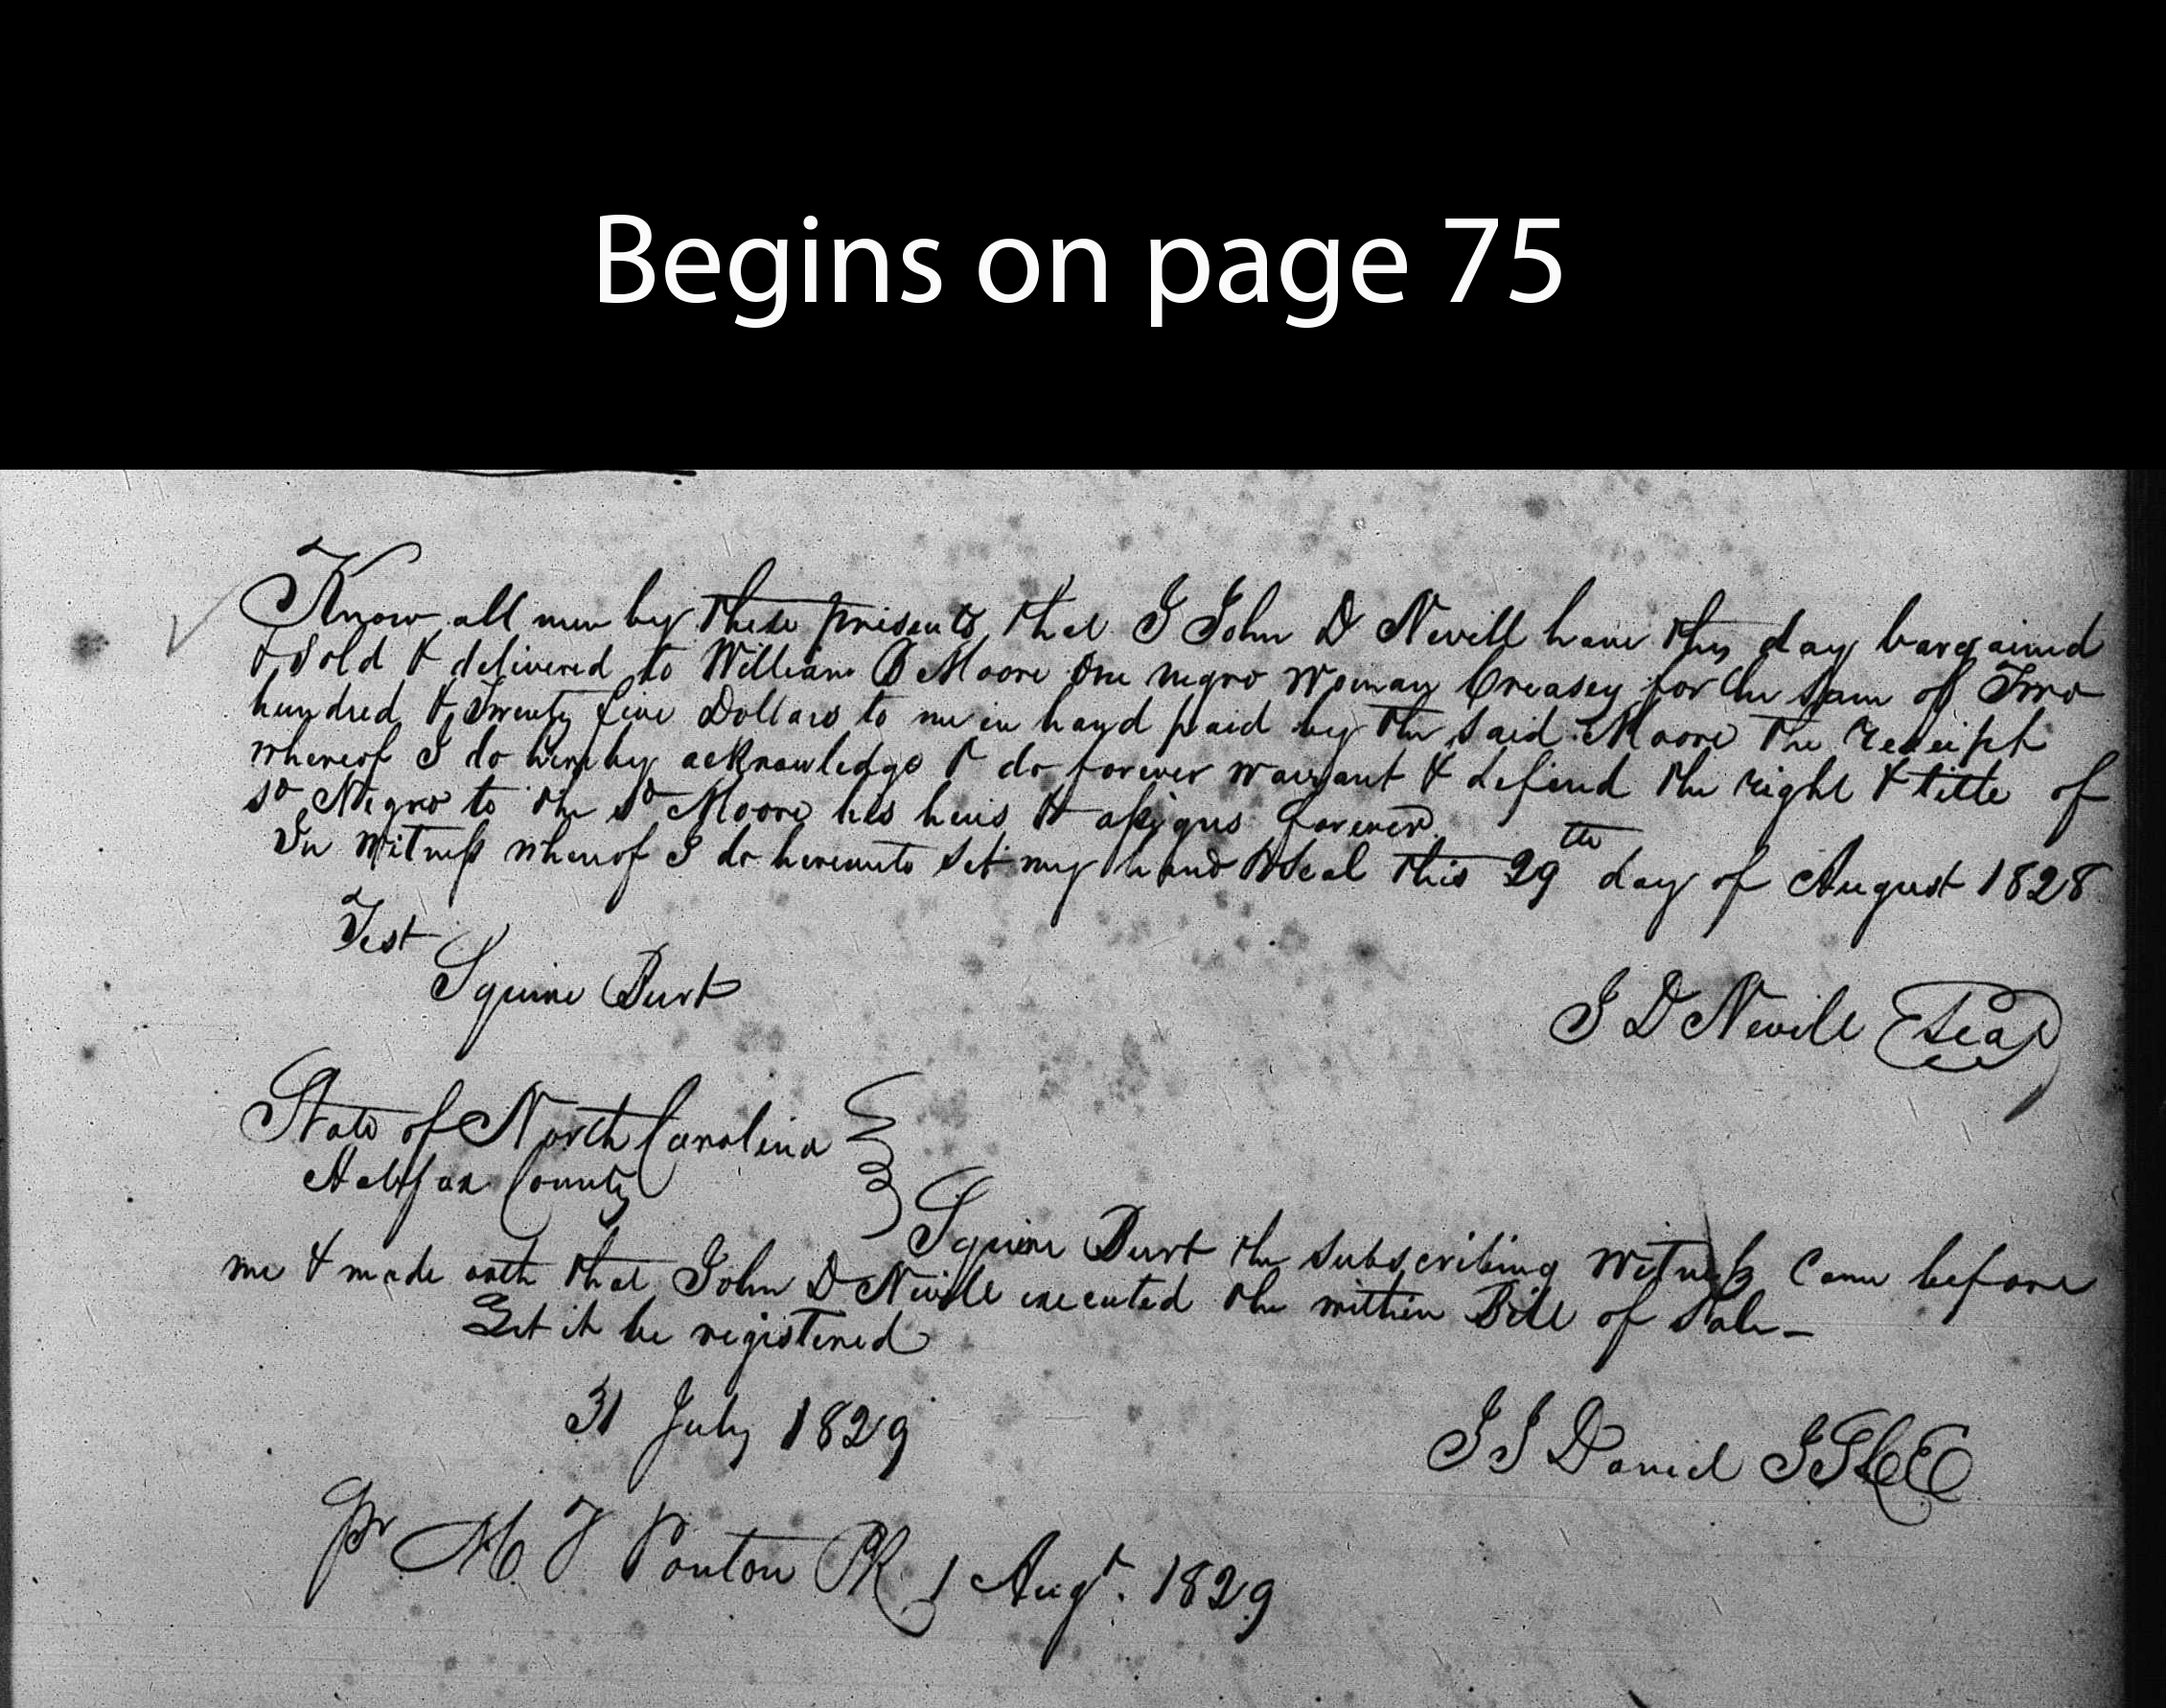 Begins on page 75
Know all men by these presents that I John D Nevill have this day bargained
& sold & delivered to William B Moore one negro woman Creasey for the sum of Two
hundred & Twenty five Dollars to me in hand paid by the said Moore the receipt
whereof I do hereby acknowledge & do forever warrant & defend the right & title of
sd Negro to the sd Moore his heirs & assigns forever
In witness whereof I do hereunto set my hand & seal this 29th day of August 1828
Test
Squire Burt
J D Nevill Seal
State of North Carolina
Halifax County
Squire Burt the subscribing witness came before
me & made oath that John D Nevill executed the within Bill of Sale
Let it be registered
31 July 1829
J J Daniel JSCLE
Pr M T Ponton PR 1 Augt. 1829